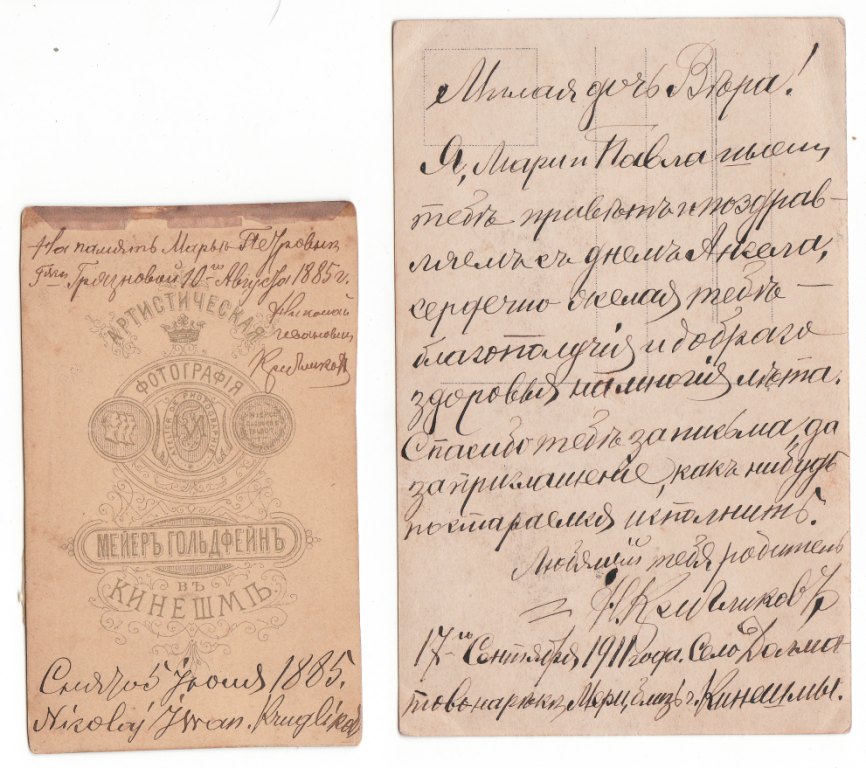 На память Марьѣ Петровнѣ
Грязновой 10го Августа 1885 г.
Николай
Ивановичъ
Кругликовъ
АРТИСТИЧЕСКАЯ
ФОТОГРАФІЯ
ATELIER DE PHOTOGRAPHIE
МЕЙЕРЪ ГОЛЬДФЕЙНЪ
ВЪ
КИНЕШМѢ
Снятъ 5 Іюня 1885.
Nikolaj Iwan. Kruglikow
Милая дочь Вѣра!
Я, Марія и Павла шлемъ
тебѣ привѣтъ и поздрав-
ляемъ съ днемъ Ангела,
сердечно желая тебѣ —
благополучія и добраго
здоровья на многія лѣта.
Спасибо тебѣ за письма, да
за приглашеніе, какъ нибудь
постараемся исполнить.
Любящій тебя родитель
Н. Кругликовъ
17го Сентября 1911 года. Село Долма-
тово на рѣкѣ Мерѣ, близь г. Кинешмы.